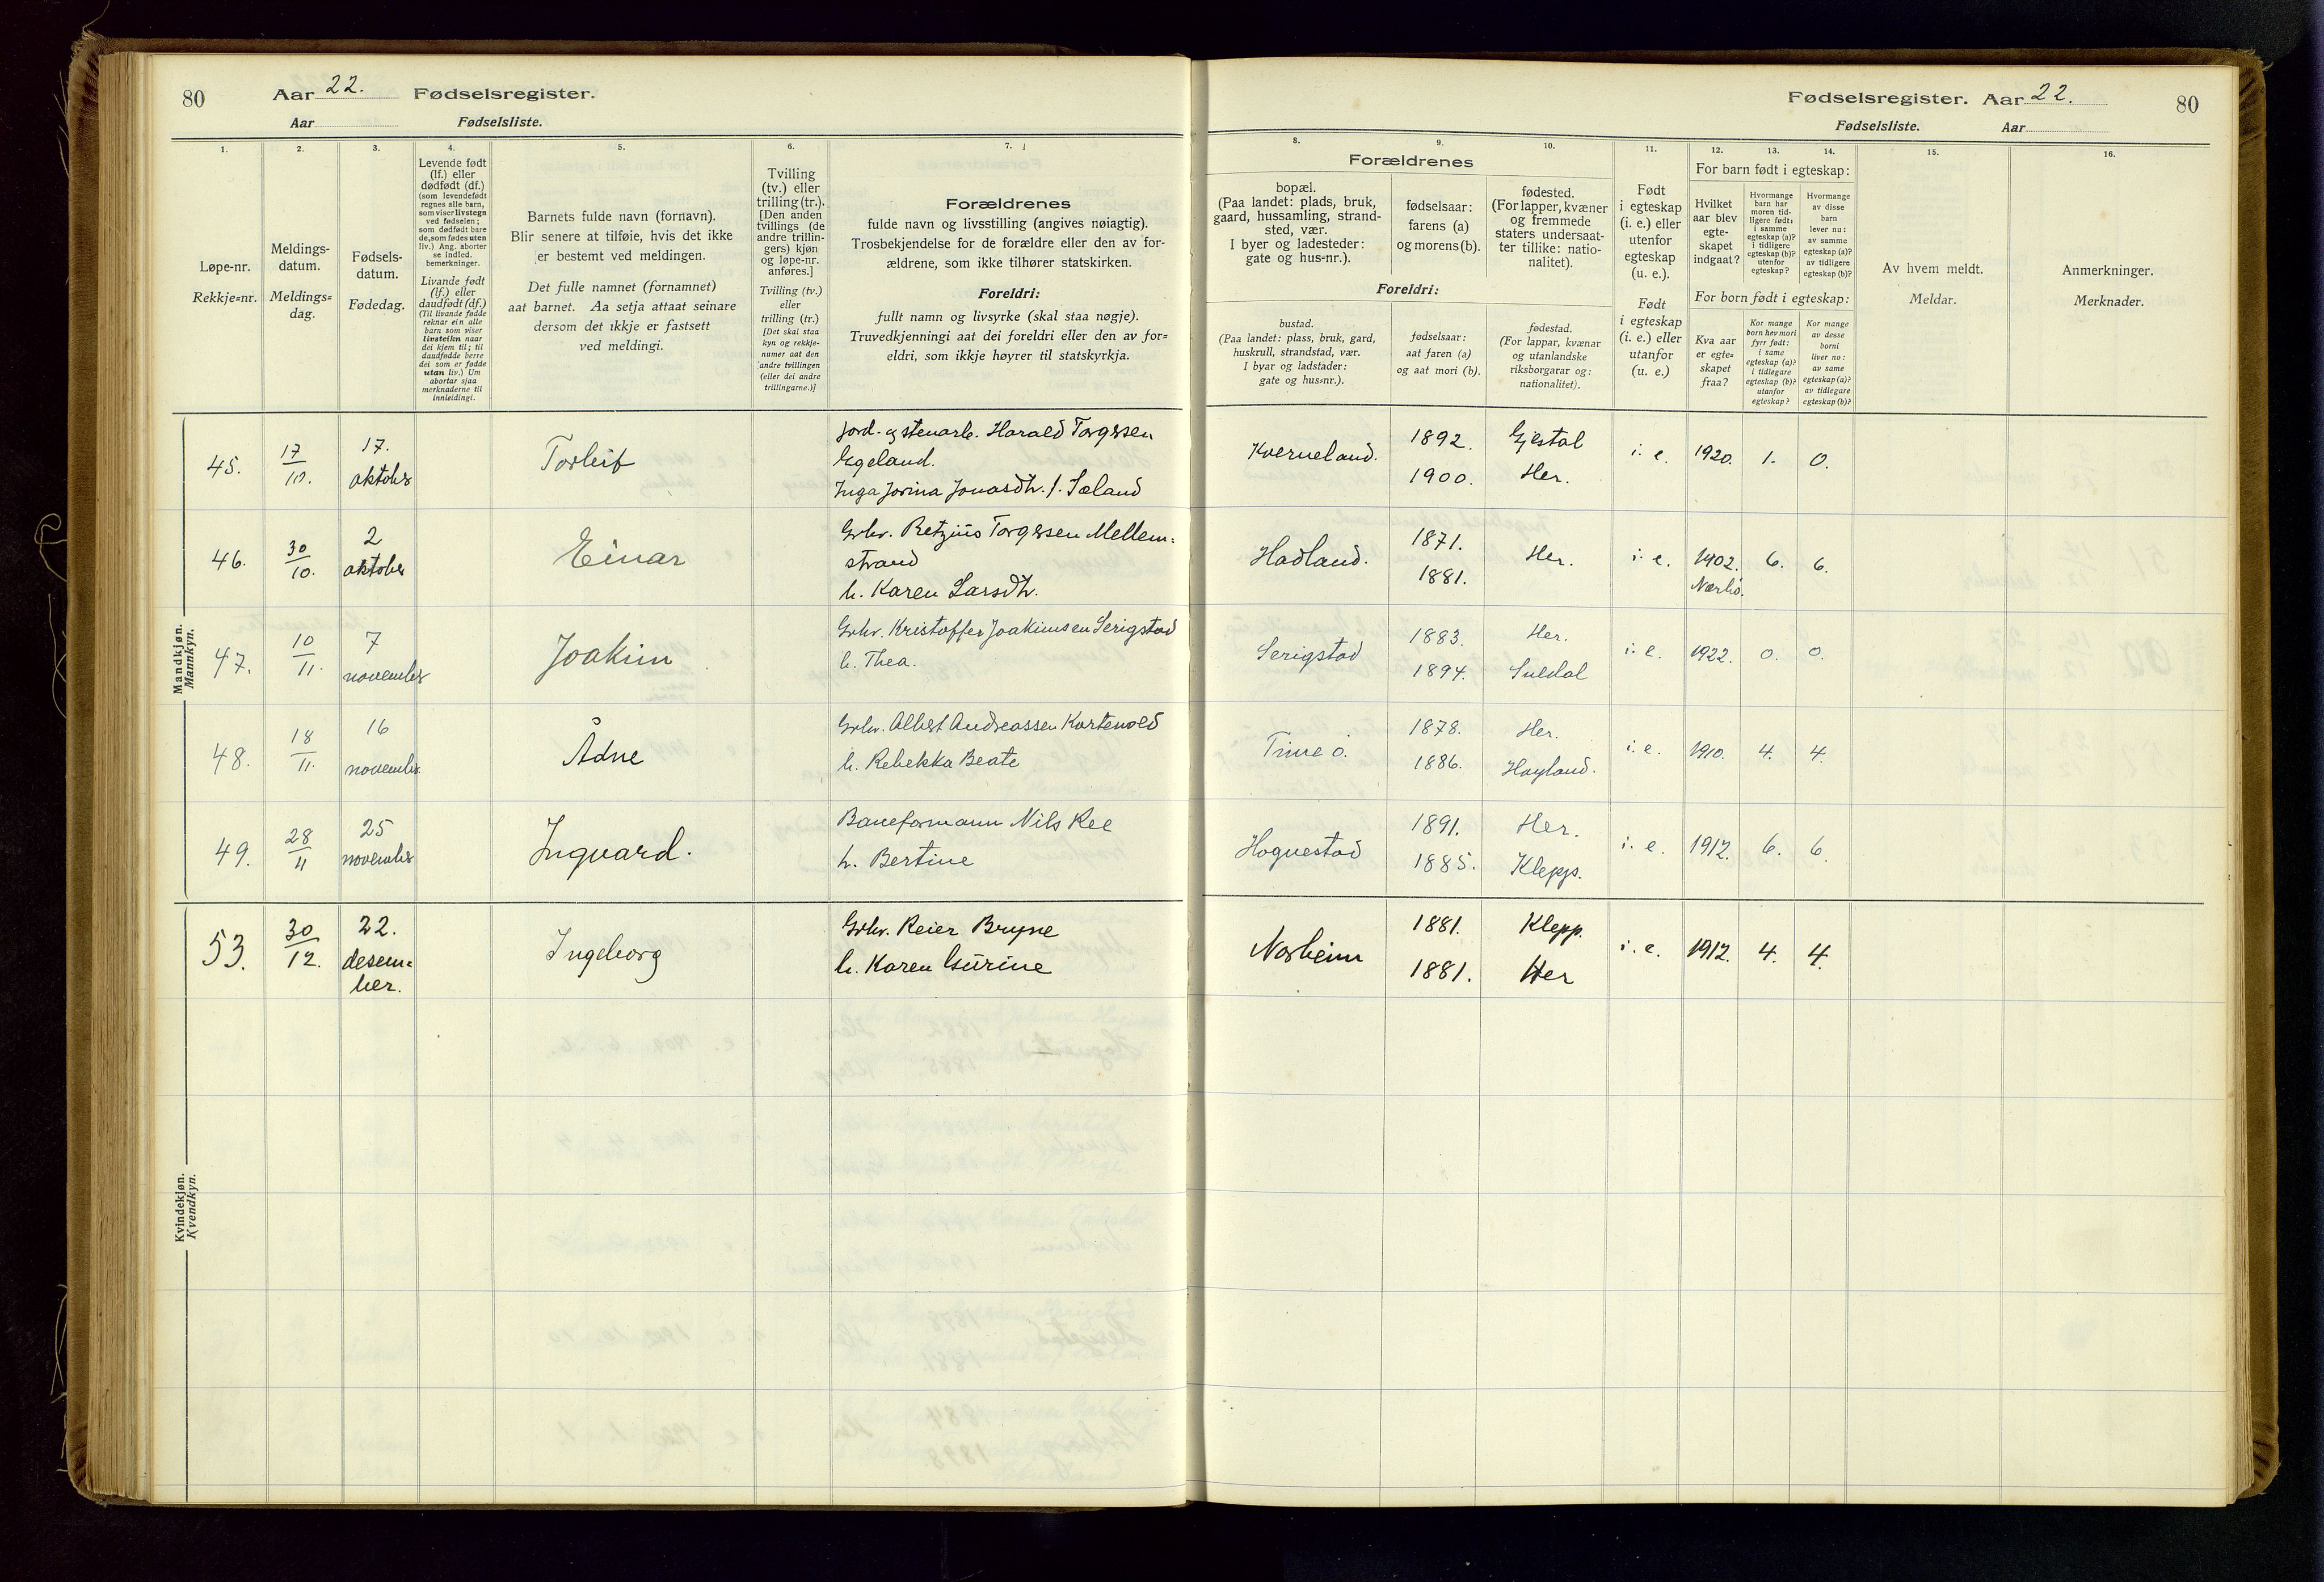 80
Aar 22. Fødselsregister.
Aar Fødselsliste.
Fødselsregister. Aar 22.
80
Fødselsliste. Aar
1.
Løpe-nr.
Rekkje=nr.
2.
Meldings-
datum.
Meldings=
dag.
3.
Fødsels-
datum.
Fødedag.
4.
Levende født
(lf.) eller
dødfødt (df.)
(som levendefødt
regnes alle barn,
som viser livstegn
ved fødselen;
som dødfødt bare
de, som fødes uten
liv.) Ang. aborter
se indled.
bemerkninger.
Livande født
(lf.) eller
daudfødt (df.)
(Til livande fødde
reknar ein alle
barn som viser
livsteikn naar
dei kjem til; til
daudfødde berre
dei som er fødde
utan liv.) Um
abortar sjaa
merknaderne til
innleidingi.
5.
Barnets fulde navn (fornavn).
Blir senere at tilføie, hvis det ikke
er bestemt ved meldingen.
Det fulle namnet (fornamnet)
aat barnet. Aa setja attaat seinare
dersom det ikkje er fastsett
ved meldingi.
6.
Tvilling
(tv.) eller
trilling (tr.).
[Den anden
tvillings (de
andre trillin-
gers) kjøn
og løpe-nr.
anføres.]
Tvilling (tv.)
eller
trilling (tr.)
[Det skal staa
kyn og rekkje-
numer aat den
andre tvillingen
(eller dei andre
trillingarne.)]
7.
Forældrenes
fulde navn og livsstilling (angives nøiagtig).
Trosbekjendelse for de forældre eller den av for-
ældrene, som ikke tilhører statskirken.
Foreldri:
fullt namn og livsyrke (skal staa nøgje).
Truvedkjenningi aat dei foreldri eller den av for=
eldri, som ikkje høyrer til statskyrkja.
Forældrenes
8.
bopæl.
(Paa landet: plads, bruk,
gaard, hussamling, strand-
sted, vær.
I byer og ladesteder:
gate og hus-nr.).
9.
fødselsaar:
farens (a)
og morens (b).
10.
fødested.
(For lapper, kvæner
og fremmede
staters undersaat-
ter tillike: natio-
nalitet).
Foreldri:
bustad.
(Paa landet: plass, bruk, gard,
huskrull, strandstad, vær.
I byar og ladstader:
gate og hus=nr.).
fødselsaar:
aat faren (a)
og aat mori (b).
fødestad.
(For lappar, kvænar
og utanlandske
riksborgarar og:
nationalitet).
11.
Født
i egteskap
(i. e.) eller
utenfor
egteskap
(u. e.).
Født
i egteskap
(i. e.) eller
utanfor
(u. e.)
12. 13. 14.
For barn født i egteskap:
Hvilket
aar blev
egte-
skapet
indgaat?
Hvormange
barn har
moren tid-
ligere født:
i samme
egteskap (a)?
i tidligere
egteskap (b)?
utenfor
egteskap?
Hvormange
av disse
barn
lever nu:
av samme
egteskap (a)?
av tidligere
egteskap (b)?
For born født i egteskap:
Kva aar
er egte=
skapet
fraa?
Kor mange
born hev mori
fyrr født:
i same
egteskap (a)?
i tidlegare
egteskap (b)?
utanfor
egteskap?
Kor mange
av desse
borni
liver no:
av same
egteskap (a)?
av tidlegare
egteskap (b)?
15.
Av hvem meldt.
Meldar.
16.
Anmerkninger.
Merknader.
Mandkjøn.
Mannkyn.
45. 17/10. 17. oktober Torleif
Jord- og stenarb. Harald Torgersen
Egeland.
Inga Jorina Jonasdtr. f. Sæland
Kverneland. 1892. Gjestal i. e. 1920. 1. 0.
1900. Her.
46. 30/10. 2 oktober Einar
Grbr. Retzius Torgersen Mellem=
strand
h. Karen Larsdtr.
Hadland. 1871. Her. i. e. 1902. 6. 6.
1881. Nærbø.
47. 10/11. 7 november Joakim
Grbr. Kristoffer Joakimsen Serigstad
h. Thea.
Serigstad 1883. Her. i. e. 1922. 0. 0.
1894. Suldal
48. 18/11. 16 november. Ådne
Grbr. Albert Andreassen Kartevold
h. Rebekka Beate
Time ø. 1878. Her. i. e. 1910. 4. 4.
1886. Høyland.
49. 28/11 25 november Ingvard.
Baneformann Nils Ree
h. Bertine
Hognestad 1891. Her. i. e. 1912. 6. 6.
1885. Klepp.
Kvindekjøn.
Kvendkyn.
53. 30/12. 22. desem=
ber. Ingeborg
Grbr. Reier Bryne
h. Karen Gurine
Norheim 1881. Klepp. i. e. 1912. 4. 4.
1881. Her